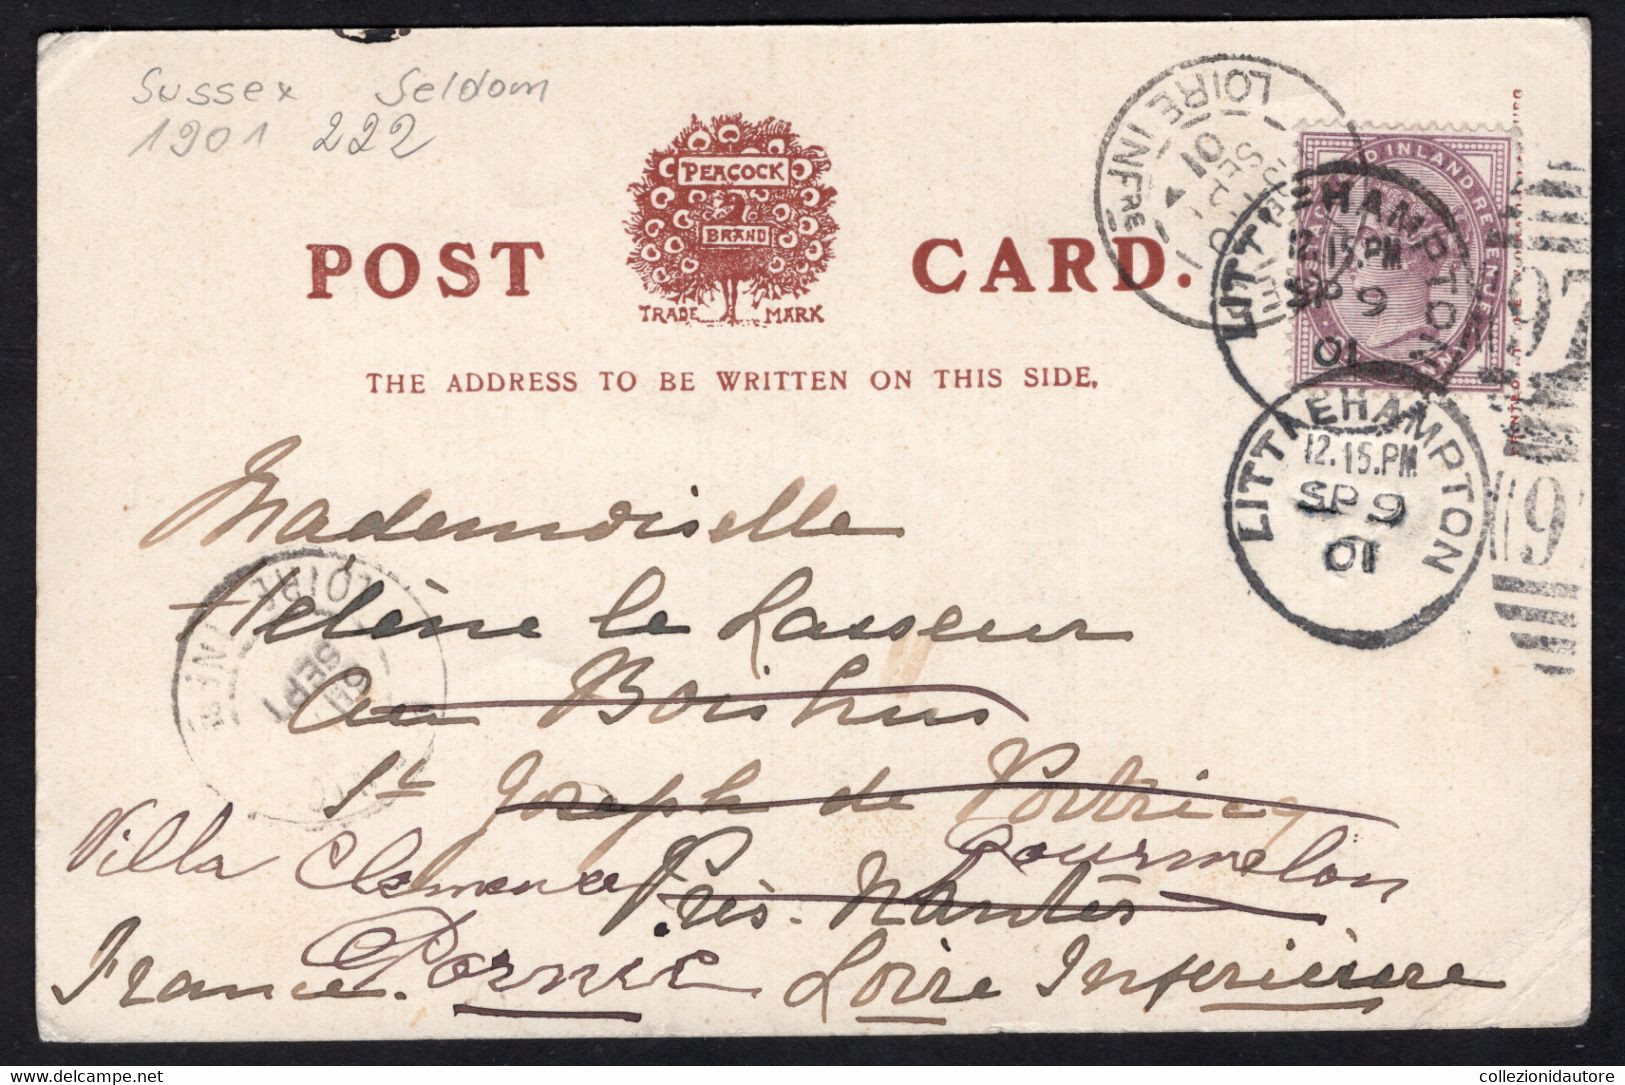 Sussex Seldom
1901 222
PEACOCK
BRAND
TRADE MARK
POST CARD.
THE ADDRESS TO BE WRITTEN ON THIS SIDE.
LOIRE INFRE
01
SEPT
LITTLEHAMPTON
12.15.PM
SP 9
01
97
INLAND REVENUE
LITTLEHAMPTON
12.15.PM
SP 9
01
9
Mademoiselle
Hélène le Lasseur
au Boishus
St Joseph de Portricq
Villa Clemence Gourmelon
Près Nantes
Pornic
France. Loire Inferieure
LOIRE INFRE
SEPT
Delcampe.net
collezionidautore